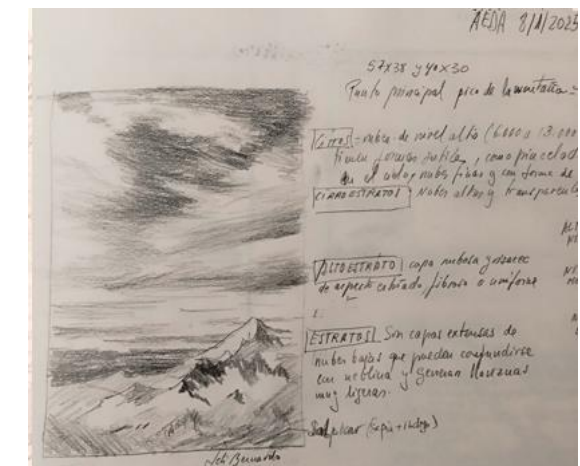 AEDA 8/1/2025
57x38 y 40x30
Punto principal pico de la montaña =
CIRROS = nubes de nivel alto (6000 a 13.000
tienen formas sutiles, como pinceladas
en el cielo, nubes finas y con forma de
CIRROESTRATOS Nubes altas y transparentes
ALTOESTRATO capa nubosa grisácea
de aspecto estriado, fibroso o uniforme
ESTRATOS Son capas extensas de
nubes bajas que pueden confundirse
con neblina y generan lloviznas
muy ligeras.
Salpicar (sepia + índigo)
Bernardo